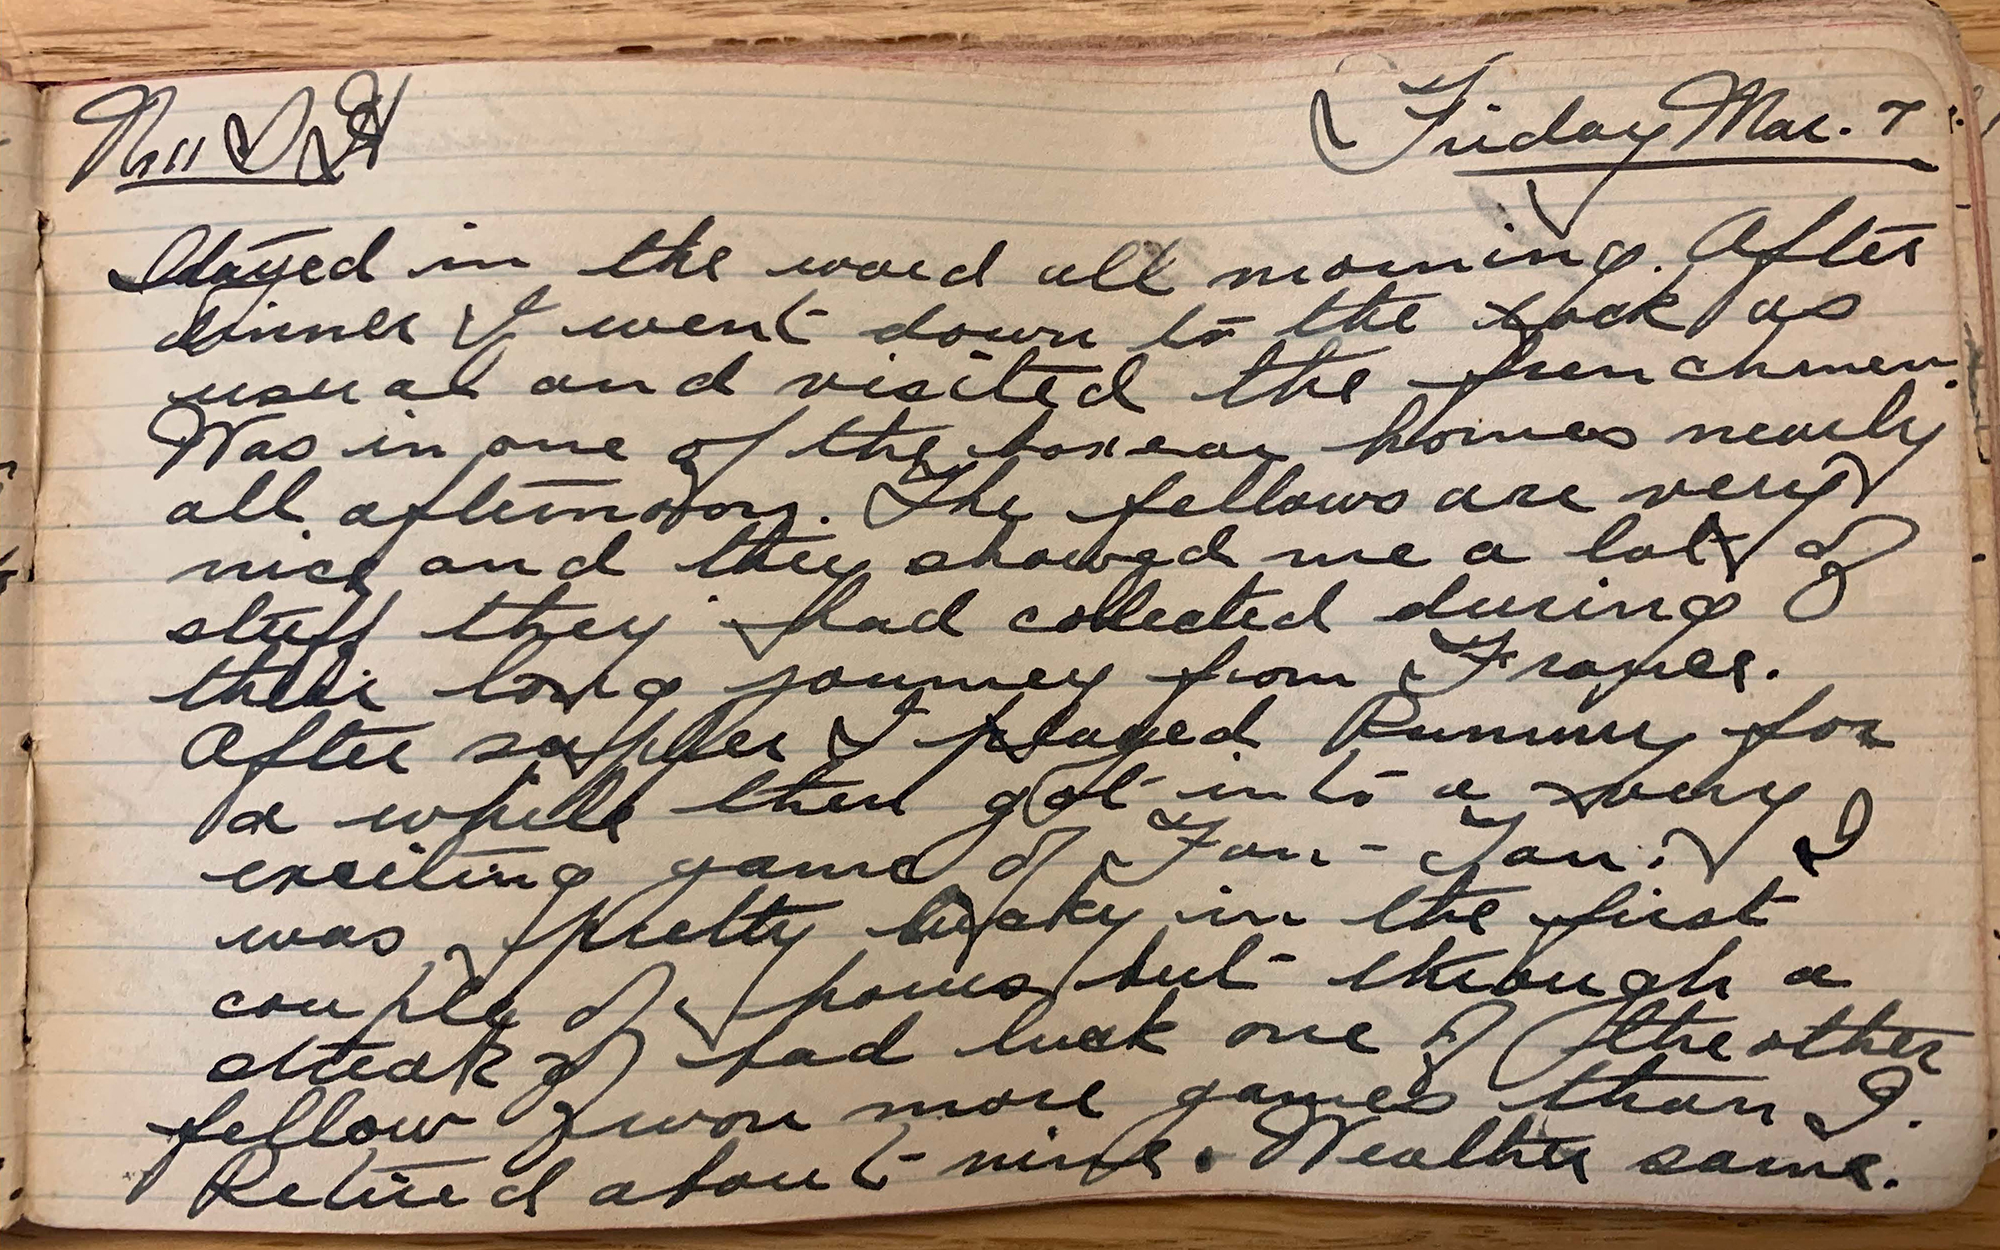 Friday Mar. 7
Stayed in the ward all morning. After
dinner I went down to the as
usual and visited the frenchmen.
Was in one of the boxcar homes nearly
all afternoon. The fellows are very
nice and they showed me a lot of
stuff they had collected during
their long journey from France.
After supper I played Rummy for
a while then got into a very
exciting game of Fan-Tan. I
was pretty lucky in the first
couple of hours but through a
streak of bad luck one of the other
fellow won more games than I.
Retired about nine. Weather same.